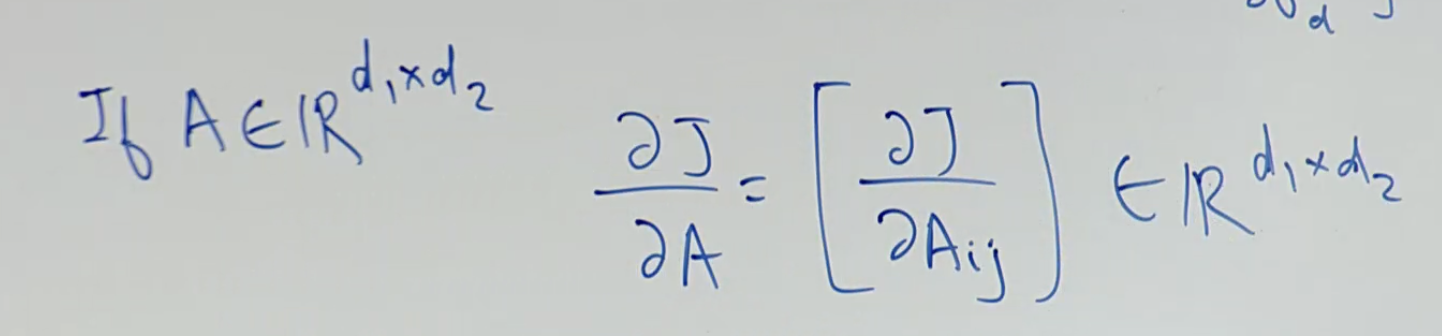 If A ∈ ℝ^{d₁×d₂}
∂J/∂A = [∂J/∂A_{ij}] ∈ ℝ^{d₁×d₂}